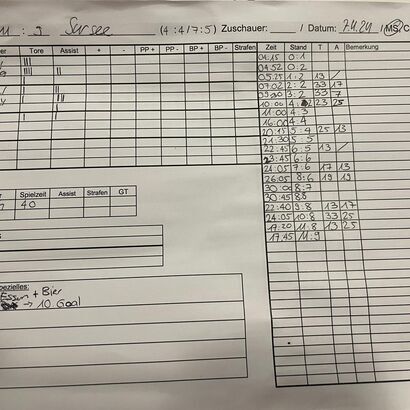 11 : 9 Sursee (4:4/7:5) Zuschauer: __ / Datum: 7.4.24 (MS/C
er Tore Assist + - PP + PP - BP + BP - Strafen
Zeit Stand T A Bemerkung
04:15 0:1
04:52 0:2
05:25 1:2 13 /
07:02 2:2 33 17
09:30 3:2 33 7
10:00 4:2 23 25
11:00 4:3
16:00 4:4
20:15 5:4 25 13
21:30 5:5
22:45 6:5 13 /
23:45 6:6
24:05 7:6 17 13
26:05 8:6 19 19
30:00 8:7
30:45 8:8
22:40 9:8 13 17
24:05 10:8 33 25
17:20 11:8 13 25
17:45 11:9
Spielzeit Assist Strafen GT
40
pezielles:
Essen + Bier
→ 10. Goal